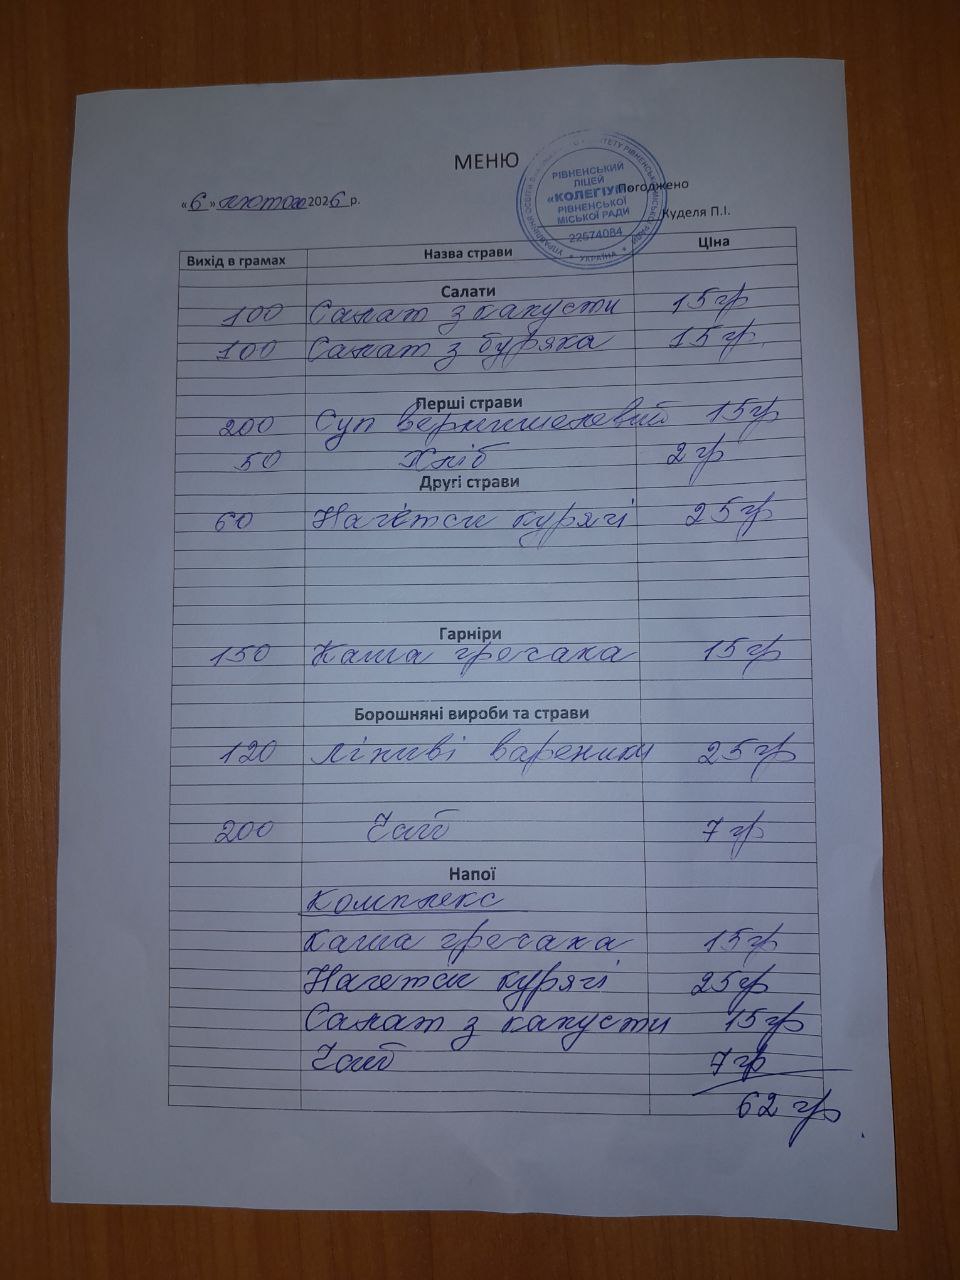 МЕНЮ
РІВНЕНСЬКИЙ
ЛІЦЕЙ
«КОЛЕГІУМ»
РІВНЕНСЬКОЇ
МІСЬКОЇ РАДИ
22574084
УКРАЇНА
Погоджено
«6» лютого 2026 р.
Куделя П.І.
Вихід в грамах Назва страви Ціна
Салати
100 Салат з капусти 15 гр
100 Салат з буряка 15 гр.
Перші страви
200 Суп вермишелевий 15 гр
50 Хліб 2 гр
Другі страви
60 Нагетси курячі 25 гр
Гарніри
150 Каша гречана 15 гр
Борошняні вироби та страви
120 Ліниві вареники 25 гр
200 Чай 7 гр
Напої
Комплекс
Каша гречана 15 гр
Нагетси курячі 25 гр
Салат з капусти 15 гр
Чай 7 гр
62 гр